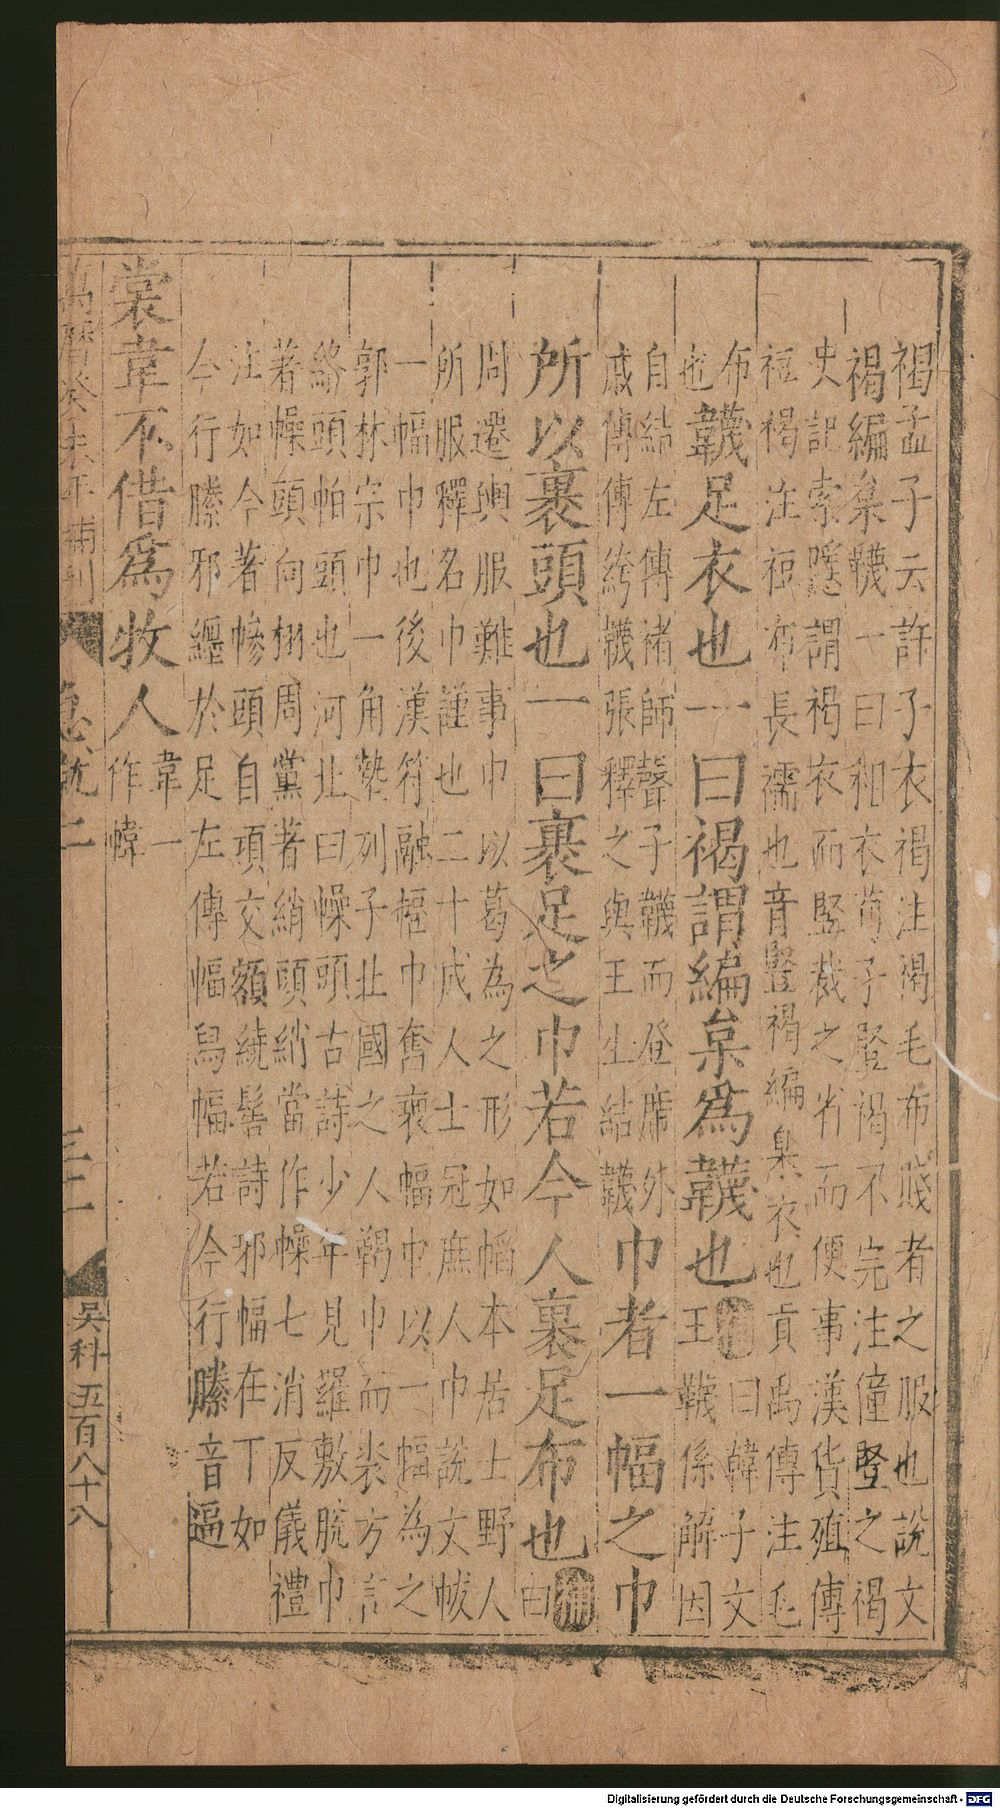 褐孟子云許子衣褐注褐毛布賤者之服也說文
褐編枲韈一曰粗衣荀子豎褐不完注僮豎之褐
史記索隱謂褐衣而豎裁之省而便事漢貨殖傳
裋褐注裋布長襦也音豎褐編枲衣也貢禹傳注毛
布
也韈足衣也一曰褐謂編枲爲韈也補曰韓子文
王韈係解因
自結左傳褚師聲子韈而登席外
戚傳傳絝韈張釋之與王生結韈巾者一幅之巾
所以裹頭也一曰裹足之巾若今人裹足布也補曰
周遷輿服難事巾以葛為之形如幍本居士野人
所服釋名巾謹也二十成人士冠庶人巾說文帗
一幅巾也後漢符融幅巾奮褏幅巾以一幅為之
郭林宗巾一角墊列子北國之人鞨巾而裘方言
絡頭帕頭也河北曰幧頭古詩少年見羅敷脫巾
著幧頭向栩周黨著綃頭綃當作幧七消反儀禮
注如今著幓頭自項交額繞髻詩邪幅在下如
今行縢邪纏於足左傳幅舄幅若今行縢音逼
裳韋不借爲牧人韋一
作幃
萬曆癸未年補刊 急就二 三十一 吳科 五百八十八
Digitalisierung gefördert durch die Deutsche Forschungsgemeinschaft - DFG